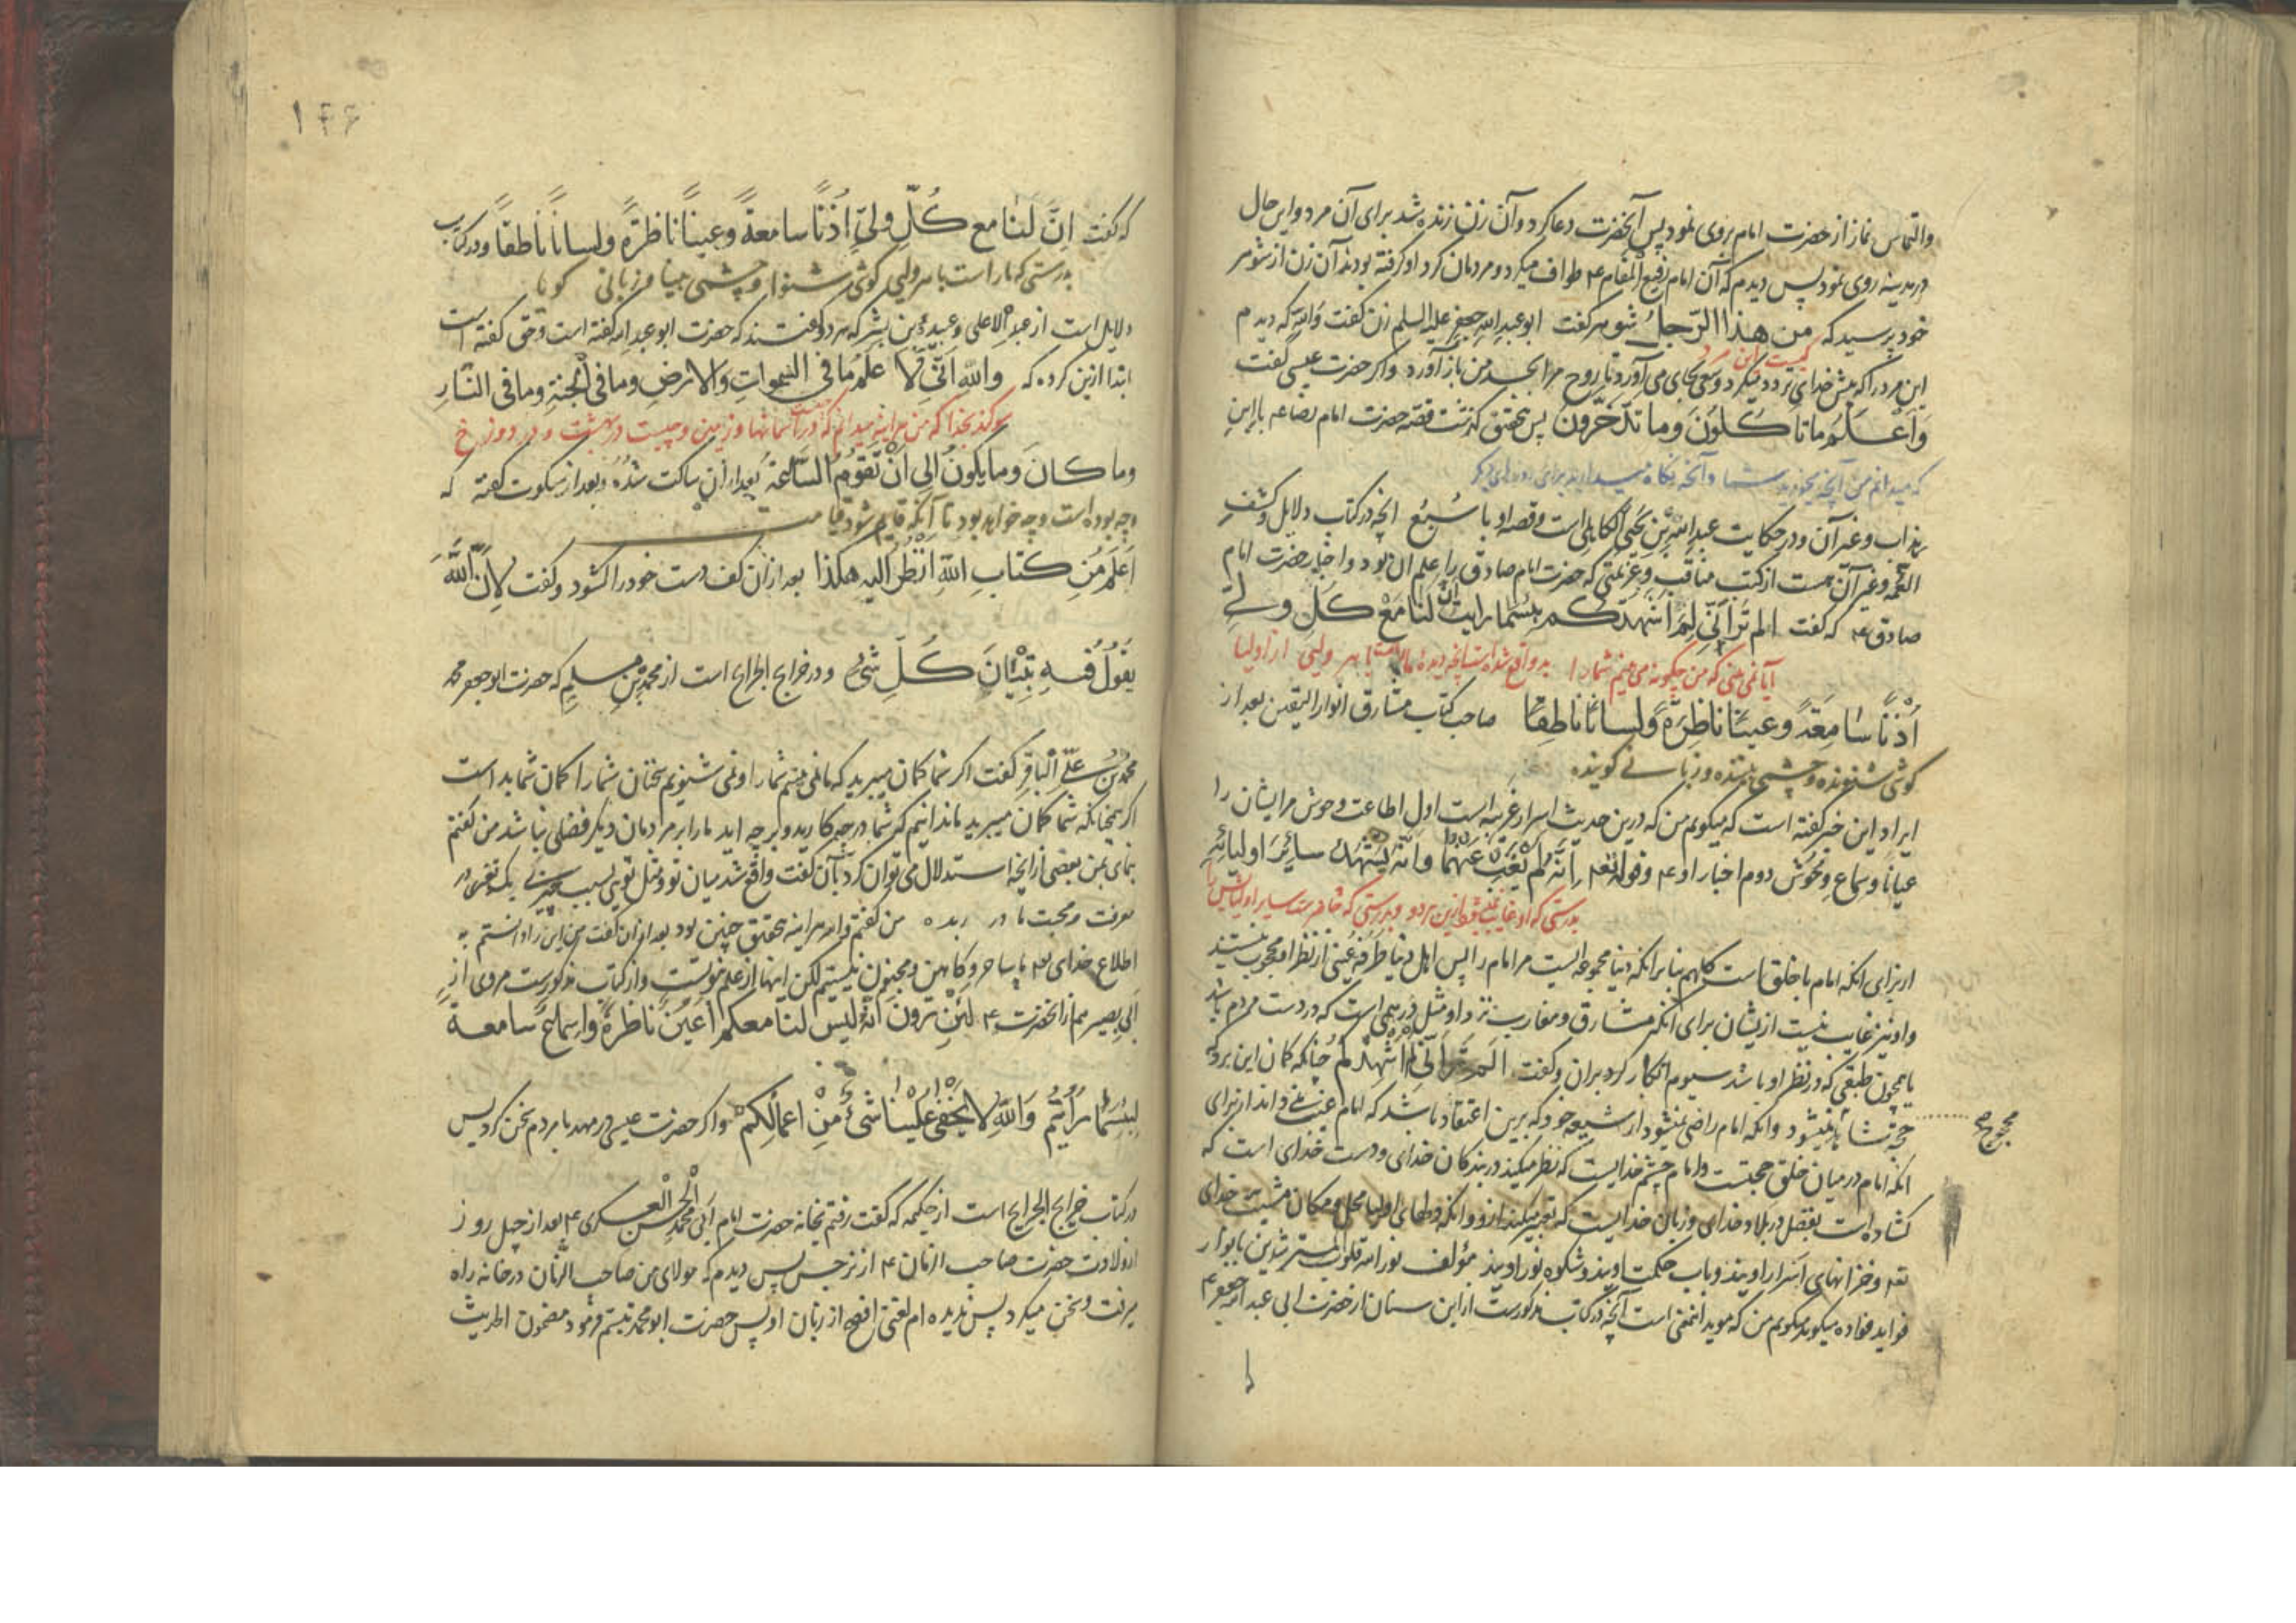 والتماس نماز از حضرت امام بروی نمود پس آنحضرت دعا کرد و آن زن زنده شد برای آن مرد و این حال
در مدینه روی نمود پس دیدم که آن امام رفیع المقام ۴ طواف میکرد و مردمان کرد او کرفته بودند آن زن از شوهر
خود پرسید که من هذا الرّجل شوهر گفت ابو عبد الله جعفر علیه السلم زن گفت والله که دیدم
کیست این مرد
این مرد را که پیش خدای تردد میکرد و سعی بجای می آورد تا روح مرا بجسد من باز آورد و اکر حضرت عیسی گفت
وَاَعْلَمُ ما تاکُلونَ وما تدّخرون پس بتحقیق گذشت قصه حضرت امام رضا ۴ با ابن
که میدانم من آنچه میخورید شما و آنچه نگاه میدارید برای روزهای دیگر
و غیر آن و در حکایت عبد الله بن یحیی الکاهلی است و قصه او با سَبُع آنچه در کتاب دلایل و کشف
الغمه و غیر آن هست از کتب مناقب و عزیمتی که حضرت امام صادق را علم آن بود و اخبار حضرت امام
صادق ۴ که گفت الم تر اَنّی لم اَشهدکم بئسما رایت ان لنا مع کل ولی
آیا نمی بینی که من چگونه می بینم شما را بد واقع شده است آنچه دیده ما را با هر ولیی از اولیا
اُذنًا سامعةً وعینًا ناظرةً ولسانًا ناطقًا صاحب کتاب مشارق انوار الیقین بعد از
گوش شنونده و چشمی بیننده و زبانی گوینده
ایراد این خبر گفته است که میگویم من که درین حدیث اسرار غریبه است اول اطاعت وحوش مر ایشان را
عیانًا و سماع وحوش دوم اخبار او ۴ و قوله انّه لم یغب عنهما وانّه یشهد سائر اولیائه
بدرستی که او غایب نمیشود ازین هر دو و بدرستی که حاضر است سایر اولیایش را
از برای انکه امام با خلق است کلهم بنا بر انکه دنیا مجموعه ایست مر امام را پس اهل دنیا طرفة عینی از نظر او محجوب نیستند
و او نیز غایب نیست ازیشان برای انکه مشارق و مغارب نزد او مثل درهمی است که در دست مردم باشد
یا همچون طبقی که در نظر او باشد سیوم انکار کرد بران و گفت الم تر انّی لم اشهدکم چنانکه کان این برد که
حجة نمیشود و انکه امام راضی نمیشود از شیعه خود که برین اعتقاد باشد که امام غیب نمی داند از برای
محجوج
انکه امام در میان خلق حجتست و امام چشم خدایست که نظر میکند در بندکان خدای و دست خدای است که
کشاده است بفضل در بلاد خدای و زبان خدایست که تعبیر میکند ازو و انکه دلهای اولیا محل و مکان مشیت خدای
تعه و خزانهای اسرار اویند و باب حکمت اویند و مشکوه نور اویند مؤلف نور الله قلوب المسترشدین بانوار
فواید فواده میکوید میکویم من که موید انمعنی است آنچه در کتاب مذکورست از ابن سنان از حضرت ابی عبد الله جعفر ۴
۱۴۶
که گفت اِنَّ لَنا مع کُلّ ولیٍّ اُذنًا سامعةً وعینًا ناظرةً ولسانًا ناطقًا و در کتاب
بدرستی که ما راست با هر ولیی گوشی شنوا و چشمی بینا و زبانی گویا
دلایل است از عبد الاعلی و عبیدة بن بشر که هر دو گفتند که حضرت ابو عبد الله گفته است وقتی گفته است
ابتدا ازین کرده که والله انّی لَاَعلمُ ما فی السموات والارض وما فی الجنة وما فی النّار
سوکند بخدا که من هر اینه میدانم که در آسمانها و زمین و چیست در بهشت و در دوزخ
وما کانَ وما یکونُ الی اَنْ تقومُ السّاعة بعد از ان ساکت شده و بعد از سکوت گفته که
و چه بوده است و چه خواهد بود تا آنکه قایم شود قیامت
اَعلم من کتاب الله انظر الیه هکذا بعد از ان کف دست خود را کشود و گفت لانّ الله
یقول فیه تبیان کلّ شئ و در خرایج الجرایح است از محمد بن مسلم که حضرت ابو جعفر محمد
محمد بن علی الباقر گفت اکر شما کمان میبرید که ما نمی بینیم شما را و نمی شنویم سخنان شما را کمان شما بد است
اکر همچنانکه شما کمان میبرید ما ندانیم که شما در چه کارید و بر چه اید ما را بر مردمان دیگر فضلی نباشد من گفتم
بنمای بمن بعضی از انچه استدلال می توان کرد بآن گفت واقع شد میان تو و مثل تویی بسبب چیزی
معرفت و محبت ما در ربذه من گفتم والله هر اینه بتحقیق چنین بود بعد از ان گفت من این را دانستم به
اطلاع خدای تعه ما ساحر و کاهن و مجنون نیستیم لکن اینها از علم نبوتست و از کتاب مذکورست مروی از
ابی بصیر هم از انحضرت ۴ لئن ترون انّه لیس لنا معکم اعین ناظرة واسماع سامعة
لبئسما رأیتم والله لا یخفی علینا شئ من اعمالکم و اکر حضرت عیسی در مهد با مردم سخن کرد پس
در کتاب خرایج الجرایح است از حکیمه که گفت رفتم بخانه حضرت امام ابی محمد الحسن العسکری ۴ بعد از چهل روز
از ولادت حضرت صاحب الزمان ۴ از نرجس پس دیدم که مولای من صاحب الزمان در خانه راه
میرفت و سخن میکرد پس ندیده ام لغتی افصح از زبان او پس حضرت ابو محمد تبسم فرمود مضمون احادیث